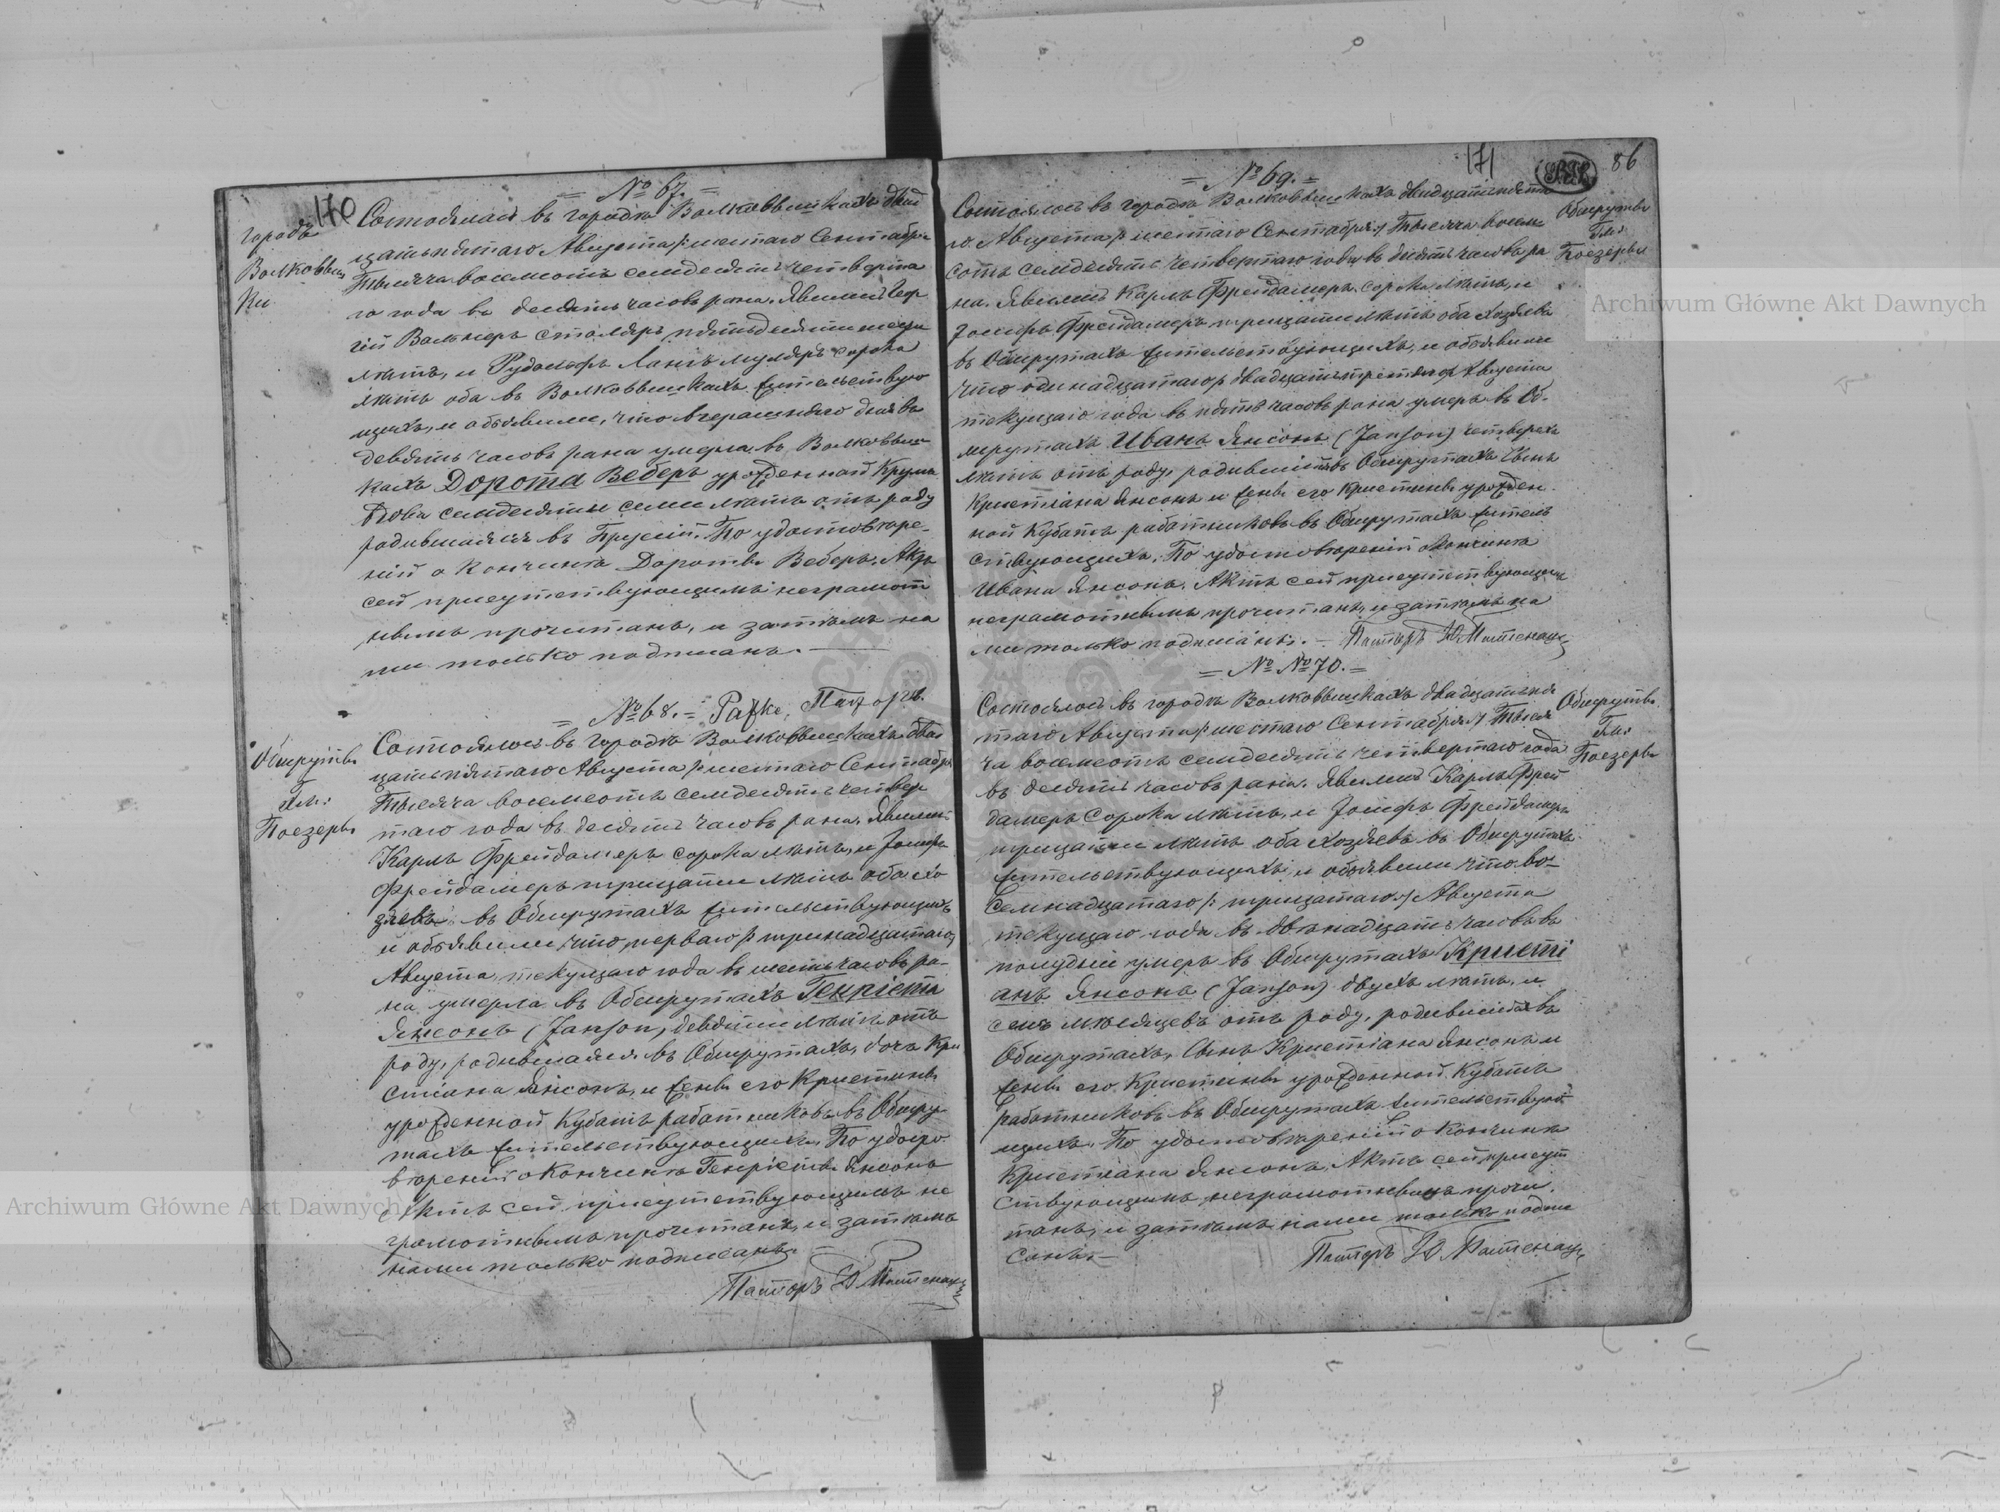 170
= № 67. =
городъ
Волковыш
ки
Состоялось въ городѣ Волковышкахъ двад
цать пятаго Августа /: шестаго Сентября
Тысяча восемсотъ семдесятъ четверта
го года въ десять часовъ рана. Явились
гій Вальнеръ столяръ пятьдесяти
лѣтъ, и Рудольфъ Лангъ муляръ сорока
лѣтъ оба въ Волковышкахъ жительствую
щихъ, и объявили, что вчерашняго дня въ
девять часовъ рана умерла въ Волковыш
кахъ Дорота Веберъ урожденная
семдесяти семи лѣтъ отъ роду
родившаяся въ Прусіи. По удостовѣре-
ніи о кончинѣ Дороты Веберъ. Актъ
сей присутствующимъ неграмот
нымъ прочитанъ, и затѣмъ на
ми только подписанъ. —
= № 68. = Пасторъ.
Обшруты
Гм:
Поезеры
Состоялось въ городѣ Волковышкахъ двад
цать пятаго Августа /: шестаго Сентября
Тысяча восемсотъ семдесятъ четвер
таго года въ десять часовъ рана. Явились
Карлъ Фрейдамеръ сорока лѣтъ, и Іосифъ
Фрейдамеръ тридцати лѣтъ оба хо
зяева въ Обшрутахъ жительствующихъ
и объявили, что перваго /: тринадцатаго
Августа текущаго года въ шесть часовъ ра-
на умерла въ Обшрутахъ Генріета
Янсонъ (Janson) девяти лѣтъ отъ
роду, родившаяся въ Обшрутахъ, дочь Кри
стіана Янсонъ, и жены его Кристины
урожденной Кубатъ работниковъ въ Обшру
тахъ жительствующихъ. По удосто
вѣреніи о кончинѣ Генріеты Янсонъ
Актъ сей присутствующимъ не
грамотнымъ прочитанъ, и затѣмъ
нами только подписанъ. —
Пасторъ
171
86
= № 69. =
Обшруты
Гм:
Поезеры
Состоялось въ городѣ Волковышкахъ двадцать пята
го Августа /: шестаго Сентября :/ Тысяча восем
сотъ семдесятъ четвертаго года въ десять часовъ ра
на. Явились Карлъ Фрейдамеръ сорока лѣтъ, и
Іосифъ Фрейдамеръ тридцати лѣтъ оба хозяева
въ Обшрутахъ жительствующихъ, и объявили
что одинадцатаго /: двадцать третяго Августа
текущаго года въ пять часовъ рана умеръ въ Об-
шрутахъ Иванъ Янсонъ (Janson) четырехъ
лѣтъ отъ роду, родившійся въ Обшрутахъ сынъ
Кристіана Янсонъ и жены его Кристины урожден
ной Кубатъ работниковъ въ Обшрутахъ житель
ствующихъ. По удостовѣреніи о кончинѣ
Ивана Янсонъ. Актъ сей присутствующимъ
неграмотнымъ прочитанъ, и затѣмъ на
ми только подписанъ. — Пасторъ
= № № 70. =
Обшруты
Гм:
Поезеры
Состоялось въ городѣ Волковышкахъ двадцать пя
таго Августа /: шестаго Сентября :/ Тысяч
ча восемсотъ семдесятъ четвертаго года
въ десять часовъ рана. Явились Карлъ Фрей
дамеръ сорока лѣтъ, и Іосифъ Фрейдамеръ
тридцати лѣтъ оба хозяева въ Обшрутахъ
жительствующихъ, и объявили что во-
семнадцатаго /: тридцатаго :/ Августа
текущаго года въ двѣнадцать часовъ въ
полудни умеръ въ Обшрутахъ Кристі
анъ Янсонъ (Janson) двухъ лѣтъ, и
семь мѣсяцевъ отъ роду, родившійся въ
Обшрутахъ, сынъ Кристіана Янсонъ и
жены его Кристины урожденной Кубатъ
работниковъ въ Обшрутахъ жительствую
щихъ. По удостовѣреніи о кончинѣ
Кристіана Янсонъ. Актъ сей присут
ствующимъ неграмотнымъ прочи
танъ, и затѣмъ нами только подпи
санъ. —
Пасторъ
Archiwum Główne Akt Dawnych
Archiwum Główne Akt Dawnych